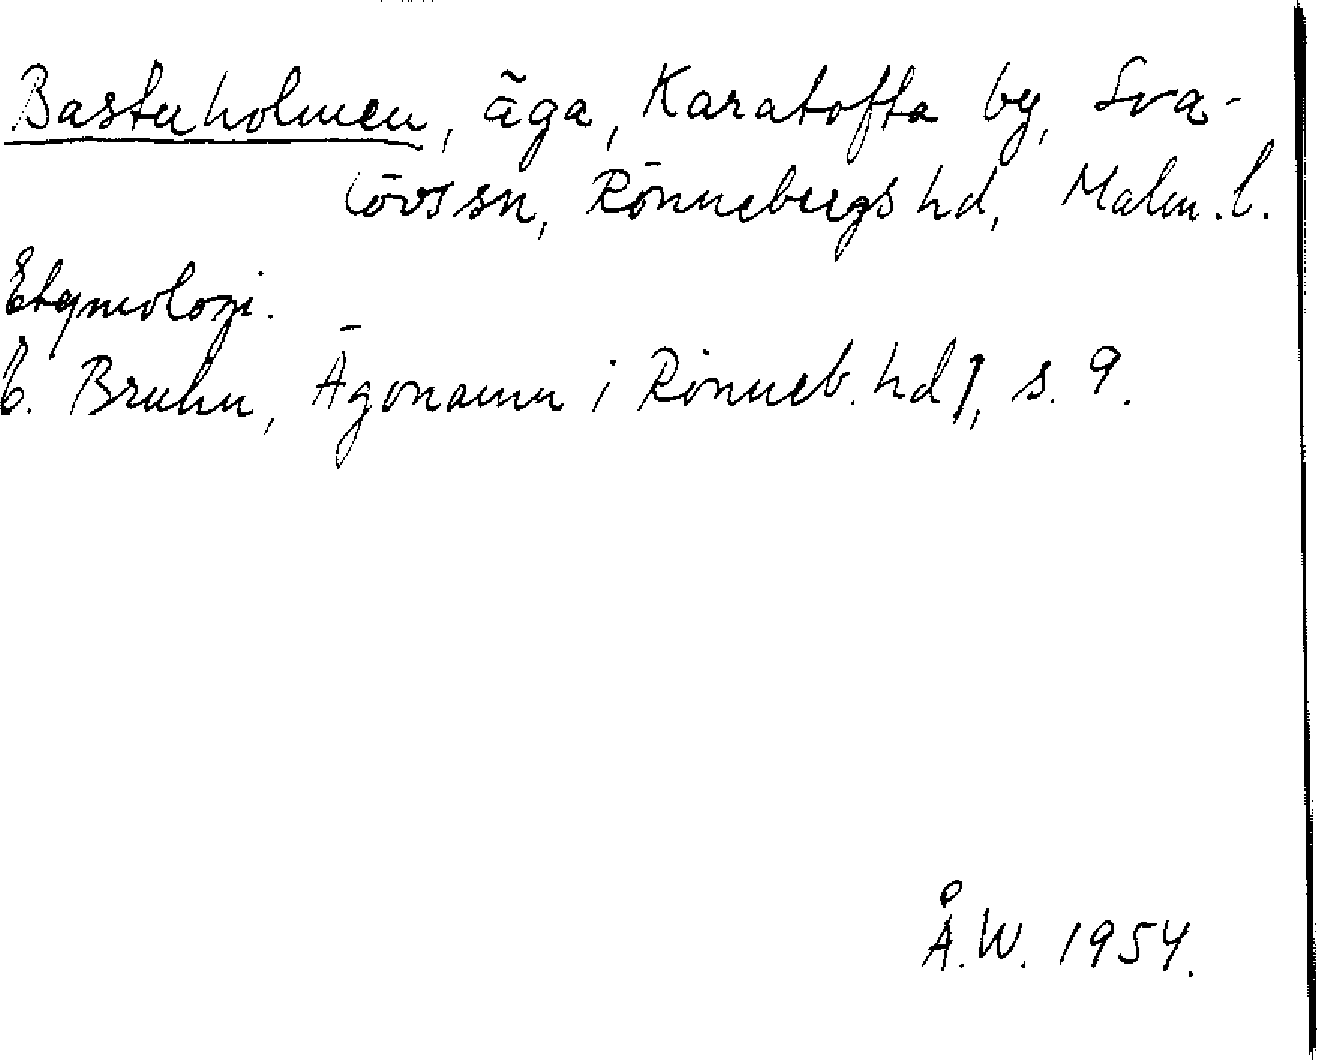 Bastuholmen, äga, Karatofta by, Sva-
lövs sn, Rönnebergs hd, Malm. l.
Etymologi.
E. Bruhn, Ägonamn i Rönneb. hd 1, s. 9.
Å.W. 1954.